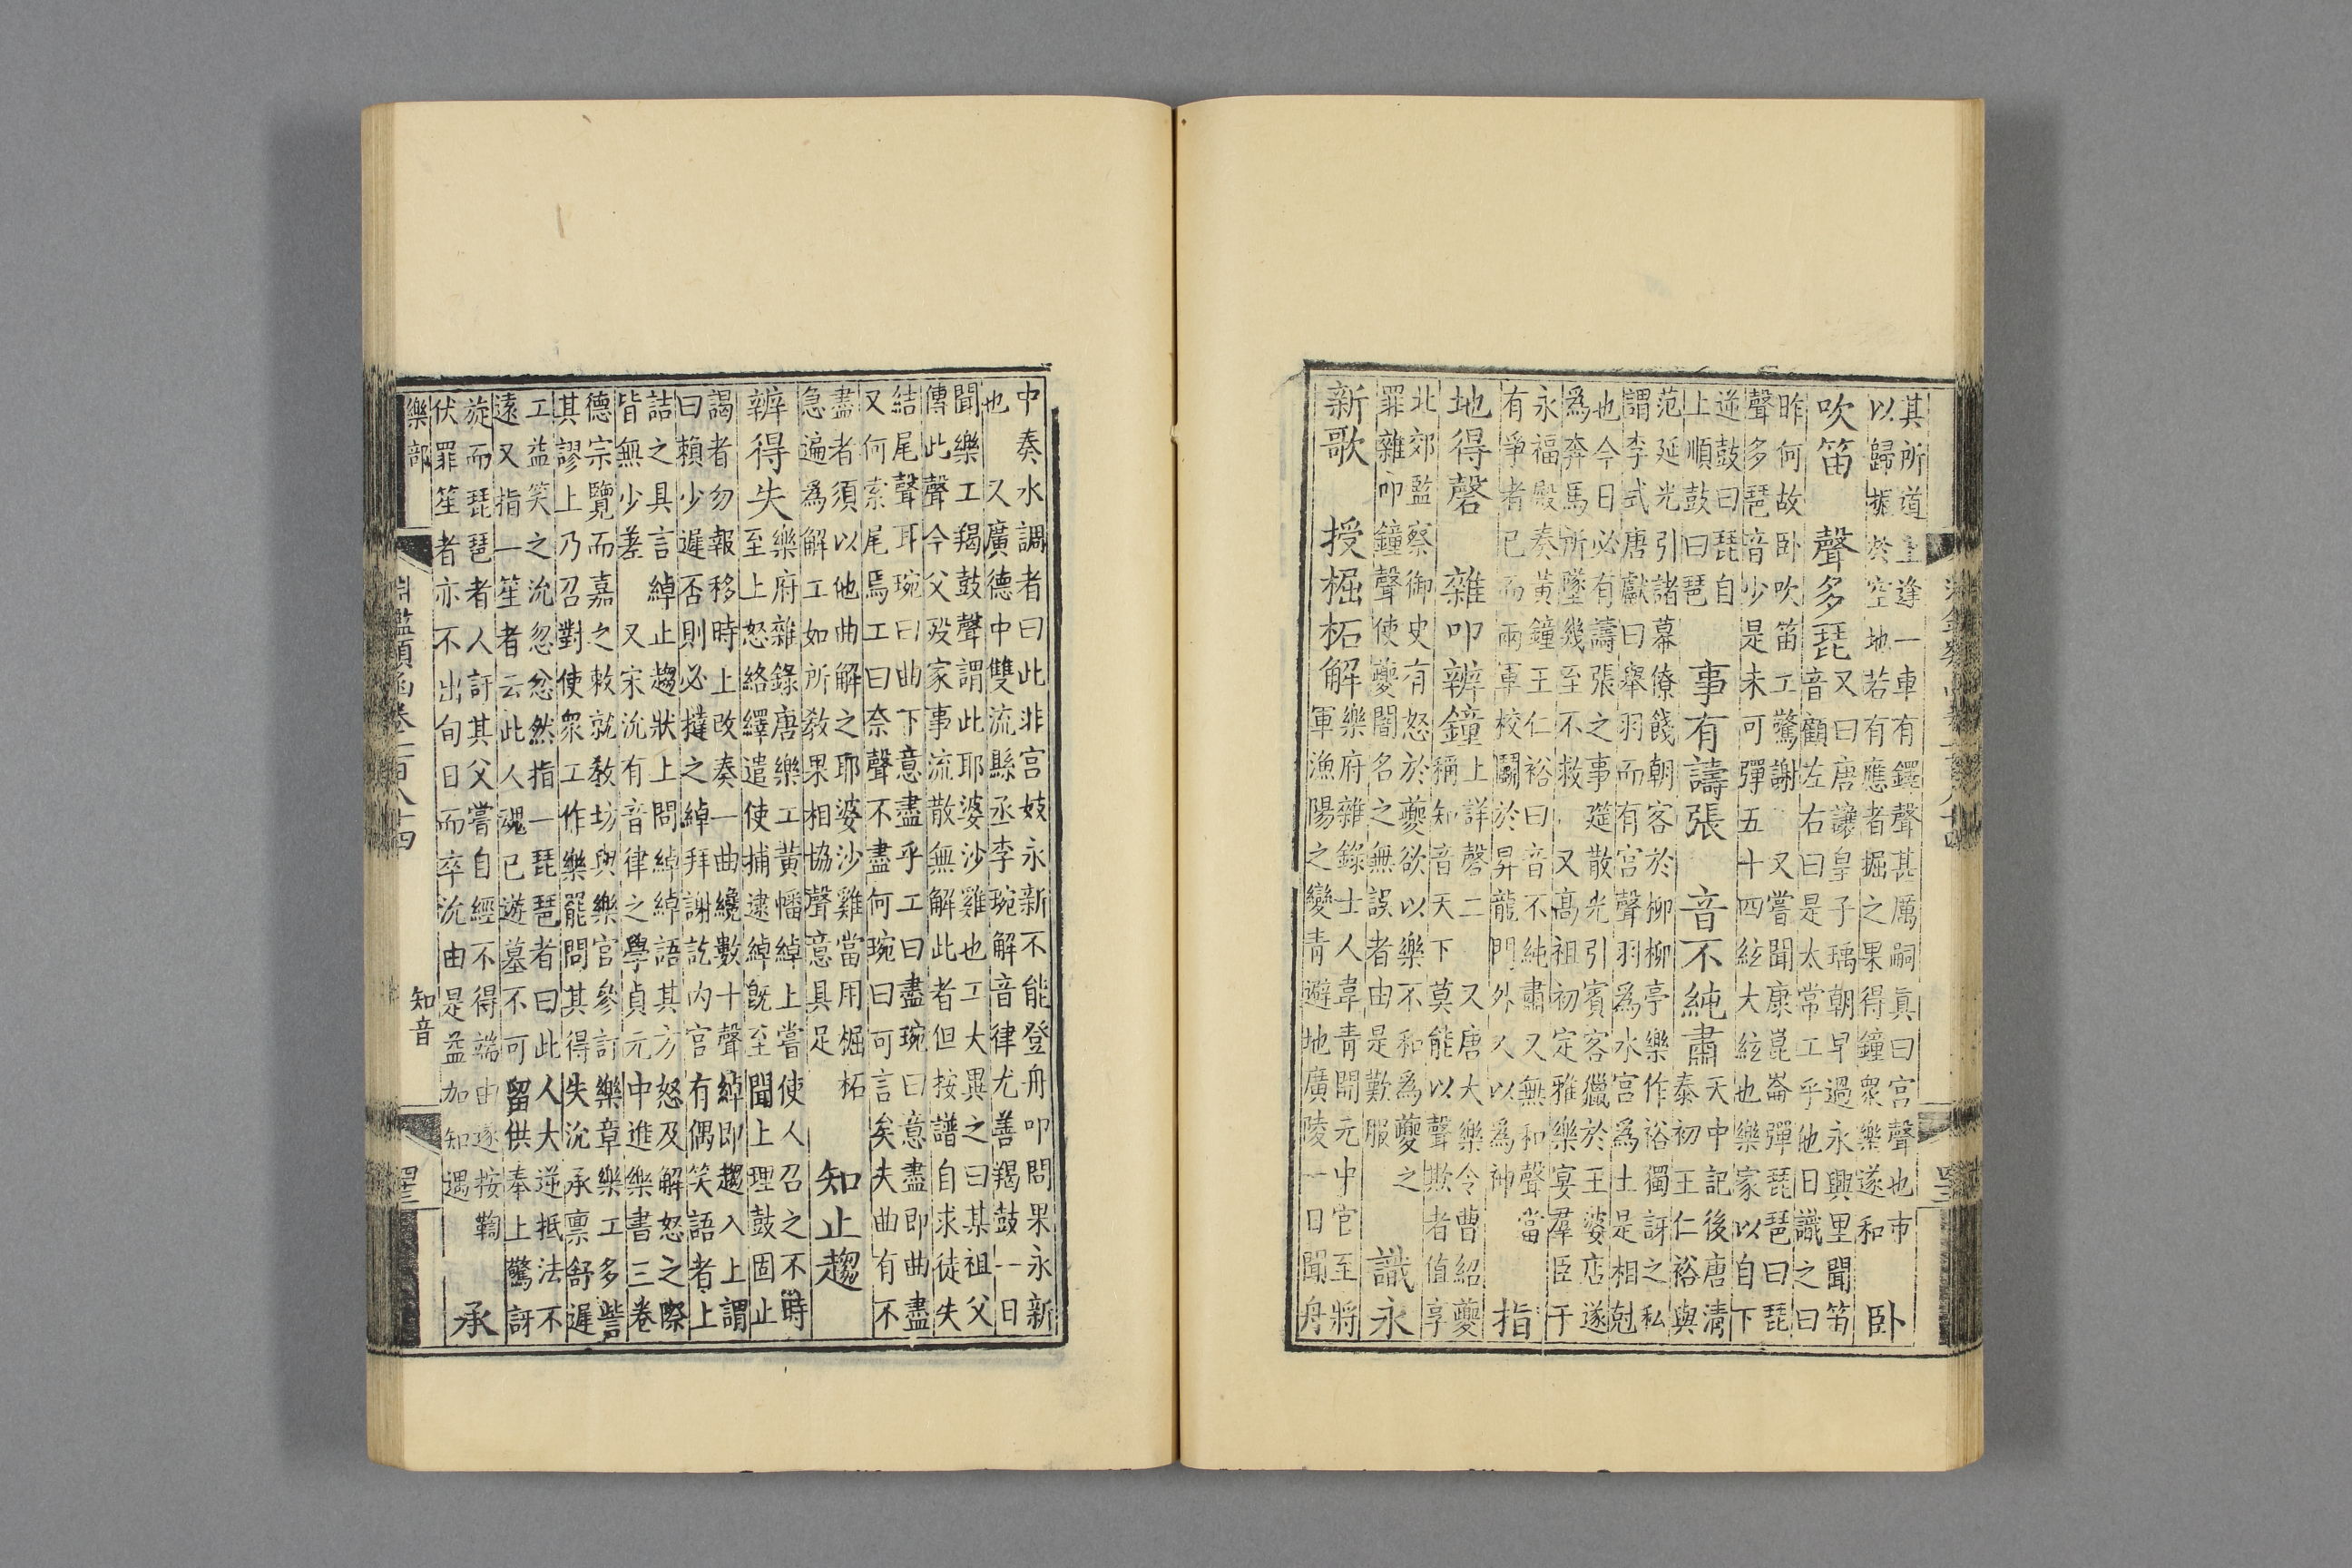 其所道上逢一車有鐸聲甚厲嗣真曰宮聲也市
以歸振於空地若有應者掘之果得鐘衆樂遂和
卧
吹笛 聲多琵
又曰唐讓皇子瑀朝早過永興里聞笛
音顧左右曰是太常工乎他日識之曰
昨何故卧吹笛工驚謝 又嘗聞康崑崙彈琵琶曰琵
聲多琶音少是未可彈五十四絃大絃也樂家以自下
逆鼓曰琵自
上順鼓曰琶
事有譸張 音不純肅
天中記後唐清
泰初王仁裕與
范延光引諸幕僚餞朝客於柳柳亭樂作裕獨訝之私
謂李式唐獻曰舉羽而有宮聲羽為水宮為土是相尅
也今日必有譸張之事筵散光引賓客獵於王婆店遂
為奔馬所墜幾至不救 又高祖初定雅樂宴羣臣于
永福殿奏黃鐘王仁裕曰音不純肅又無和聲當
有爭者已而兩軍校鬭於昇龍門外人以為神
指
地得磬 雜叩辨鐘
上詳磬二 又唐大樂令曹紹夔
稱知音天下莫能以聲欺者值享
北郊監察御史有怒於夔欲以樂不和為夔之
罪雜叩鐘聲使夔闇名之無誤者由是歎服
識永
新歌 授掘柘解
樂府雜錄士人韋青開元中官至將
軍漁陽之變青避地廣陵一日聞舟
中奏水調者曰此非宮妓永新不能登舟叩問果永新
也 又廣德中雙流縣丞李琬解音律尤善羯鼓一日
聞樂工羯鼓聲謂此耶婆沙雞也工大異之曰某祖父
傳此聲今父歿家事流散無解此者但按譜自求徒失
結尾聲耳琬曰曲下意盡乎工曰盡琬曰意盡即曲盡
又何索尾焉工曰奈聲不盡何琬曰可言矣夫曲有不
盡者須以他曲解之耶婆沙雞當用掘柘
急遍為解工如所敎果相協聲意具足
知止趨
辨得失
樂府雜錄唐樂工黃幡綽上嘗使人召之不時
至上怒絡繹遣使捕逮綽旣至聞上理鼓固止
謁者勿報移時上改奏一曲纔數十聲綽即趨入上謂
曰賴少遲否則必撻之綽拜謝訖內宮有偶笑語者上
詰之具言綽止趨狀上問綽綽語其方怒及解怒之際
皆無少差 又宋沇有音律之學貞元中進樂書三卷
德宗覽而嘉之敕就教坊與樂官參討樂章樂工多訾
其謬上乃召對使衆工作樂罷問其得失沇承稟舒遲
工益笑之沇忽忿然指一琵琶者曰此人大逆抵法不
遠又指一笙者云此人魂已遊墓不可留供奉上驚訝
旋而琵琶者人訐其父嘗自經不得端由遂按鞫
伏罪笙者亦不出旬日而卒沇由是益加知遇
承
樂部 知音
淵鑑類函卷一百八十四